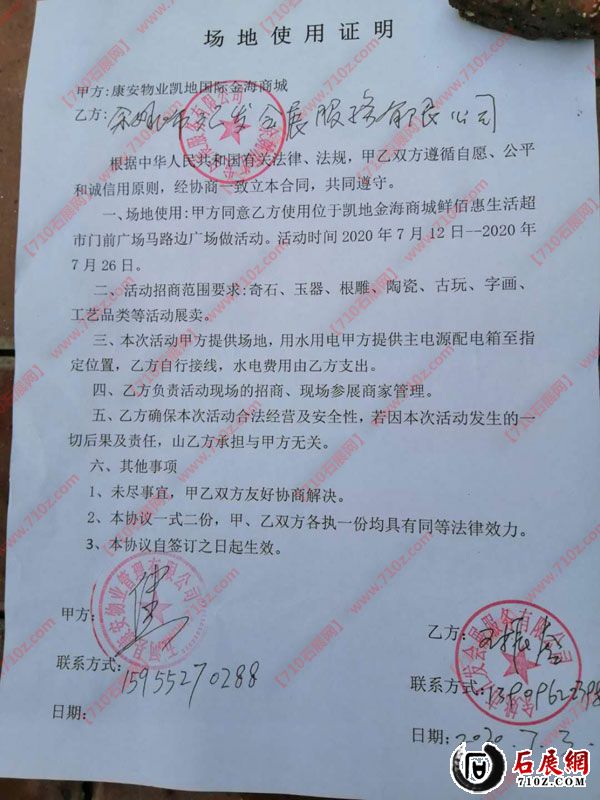 场地使用证明
甲方:康安物业凯地国际金海商城
乙方: 余姚市汇发会展服务有限公司
根据中华人民共和国有关法律、法规，甲乙双方遵循自愿、公平
和诚信用原则，经协商一致立本合同，共同遵守。
一、场地使用:甲方同意乙方使用位于凯地金海商城鲜佰惠生活超
市门前广场马路边广场做活动。活动时间2020年7月12日--2020年
7月26日。
二、活动招商范围要求:奇石、玉器、根雕、陶瓷、古玩、字画、
工艺品类等活动展卖。
三、本次活动甲方提供场地，用水用电甲方提供主电源配电箱至指
定位置，乙方自行接线，水电费用由乙方支出。
四、乙方负责活动现场的招商、现场参展商家管理。
五、乙方确保本次活动合法经营及安全性，若因本次活动发生的一
切后果及责任，山乙方承担与甲方无关。
六、其他事项
1、未尽事宜，甲乙双方友好协商解决。
2、本协议一式二份，甲、乙双方各执一份均具有同等法律效力。
3、本协议自签订之日起生效。
甲方:
联系方式: 15955270288
日期:
乙方:
联系方式:
日期: 2020.7.3
【710石展网】www.710z.com
石展網
www.710z.com